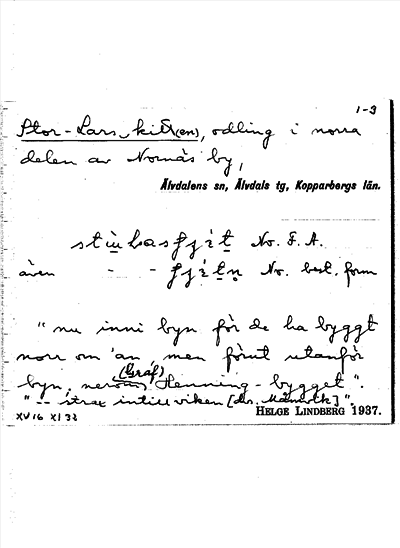 1-3
Stor-Lars, kitt(en), odling i norra
delen av Nornäs by,
Älvdalens sn, Älvdals tg, Kopparbergs län.
No. F. A.
även - - No. best. form
"nu inni byn för de ha byggt
norr om 'an, men förut utanför
byn, nerom (Graf) Henning-bygget".
"-- strax intill viken
HELGE LINDBERG 1937.
XV 16 XI 33